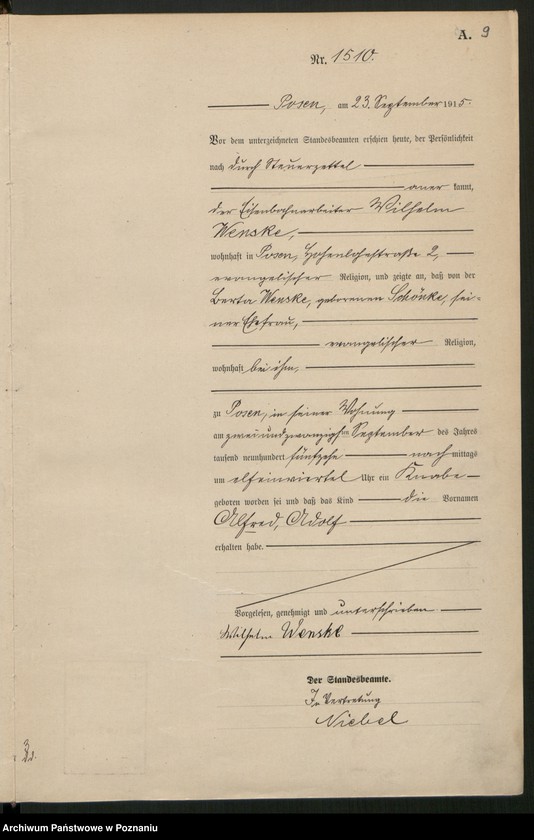 A. 9
Nr. 1510.
Posen, am 23. September 1915.
Vor dem unterzeichneten Standesbeamten erschien heute, der Persönlichkeit
nach durch Steuerzettel
anerkannt,
der Eisenbahnarbeiter Wilhelm
Wenske,
wohnhaft in Posen, Hohenlohestraße 2,
evangelischer Religion, und zeigte an, daß von der
Berta Wenske, geborenen Schönke, sei-
ner Ehefrau,
evangelischer Religion,
wohnhaft bei ihm,
zu Posen, in seiner Wohnung
am zweiundzwanzigsten September des Jahres
tausend neunhundert fünfzehn nachmittags
um elfeinviertel Uhr ein Knabe
geboren worden sei und daß das Kind die Vornamen
Alfred, Adolf
erhalten habe.
Vorgelesen, genehmigt und unterschrieben
Wilhelm Wenske
Der Standesbeamte.
In Vertretung
Niebel
Archiwum Państwowe w Poznaniu